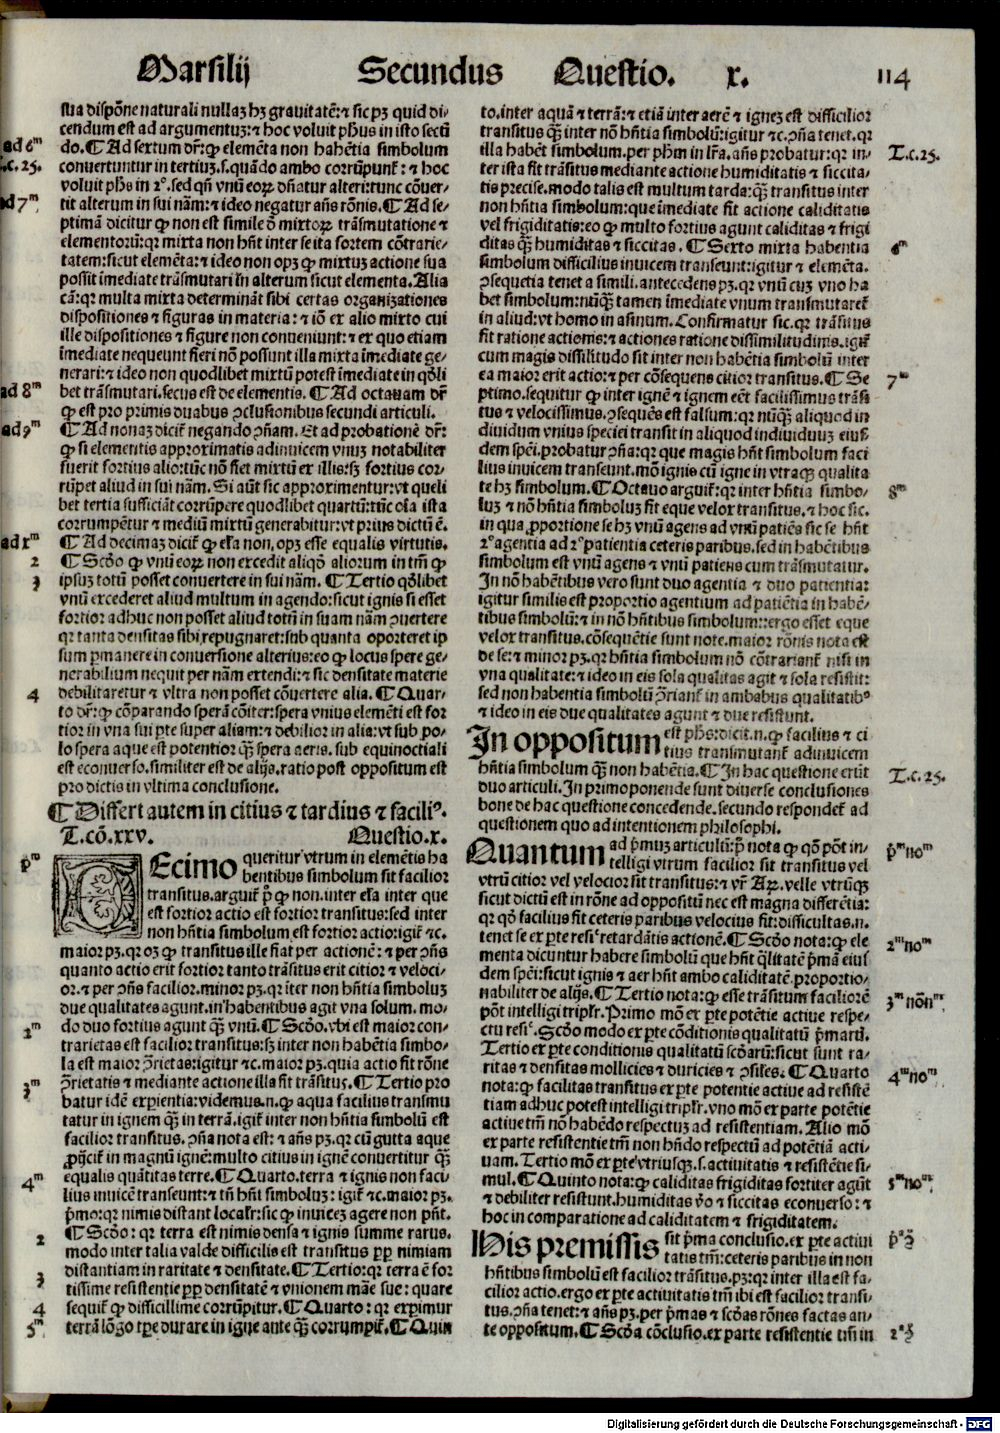 Marsilij Secundus Questio. x. 114
sua dispōne naturali nullaȝ hȝ grauitatē: ⁊ sic pȝ quid di⸗
cendum est ad argumentuȝ: ⁊ hoc voluit ph̄us in isto secū
do. ¶ Ad sextum dr̄: ꝙ elemēta non habētia simbolum
ad 6ᵐ
convertuntur in tertiuȝ .s. quādo ambo corrūpunt̄: ⁊ hoc
T.c. 25.
voluit ph̄s in 2º. sed qn̄ vnū eoꝝ dn̄atur alteri: tunc cōuer⸗
tit alterum in sui nām: ⁊ ideo negatur an̄s rōnis. ¶ Ad se⸗
ad 7ᵐ
ptimā dicitur ꝙ non est simile ō mixtoꝝ trāsmutatione ⁊
elementorū: qꝛ mixta non hn̄t inter se ita fortem cōtrarie⸗
tatem: sicut elemēta: ⁊ ideo non opȝ ꝙ mixtuȝ actione sua
possit īmediate trāsmutari in alterum sicut elementa. Alia
cā: qꝛ multa mixta determināt sibi certas organizationes
dispositiones ⁊ figuras in materia: ⁊ iō ex alio mixto cui
ille dispositiones ⁊ figure non conueniunt: ⁊ ex quo etiam
īmediate nequeunt fieri nō possunt illa mixta īmediate ge⸗
nerari: ⁊ ideo non quodlibet mixtū potest īmediate in qd̄li
bet trāsmutari. secus est de elementis. ¶ Ad octauam dr̄
ad 8ᵐ
ꝙ est pro primis duabus ꝯclusionibus secundi articuli.
¶ Ad nonaȝ dicit̄ negando ꝯn̄am. Et ad probationē dr̄:
ad 9ᵐ
ꝙ si elementis approximatis adinuicem vnuȝ notabiliter
fuerit fortius alio: tūc nō fiet mixtū ex illis: sȝ fortius cor⸗
rūpet aliud in sui nām. Si aūt sic approximentur: vt queli
bet tertia sufficiāt corrūpere quodlibet quartū: tūc oīa ista
corrumpētur ⁊ mediū mixtū generabitur: vt prius dictū ē.
¶ Ad decimaȝ dicit̄ ꝙ el̄a non opȝ esse equalis virtutis.
ad xᵐ
¶ Scd̄o ꝙ vnū eoꝝ non excedit aliqō aliorum in tm̄ ꝙ
2
ipsuȝ totū posset convertere in sui nām. ¶ Tertio qd̄libet
3
vnū excederet aliud multum in agendo: sicut ignis si esset
fortior adhuc non posset aliud totū in suam nām ꝯuertere
qꝛ tanta densitas sibi repugnaret: sub quanta oporteret ip
sum ꝑmanere in conversione alterius: eo ꝙ locus spere ge⸗
nerabilium nequit per nām extendi: ⁊ sic densitate materie
debilitaretur ⁊ vltra non posset cōuertere alia. ¶ Quar⸗
4
to dr̄: ꝙ cōparando sperā cōiter: spera vnius elemēti est for
tior in vna sui ꝑte super aliam: ⁊ debilior in alia: vt sub po⸗
lo spera aque est potentior qȝ̄ spera aeris. sub equinoctiali
est econuerso. similiter est de alijs. ratio post oppositum est
pro dictis in vltima conclusione.
¶ Differt autem in citius ⁊ tardius ⁊ faciliꝰ.
T.cō.xxv. Questio.x.
DEcimo queritur vtrum in elemētis ha
pᵐ
bentibus simbolum sit facilior
transitus. arguit̄ p̄ ꝙ non. inter el̄a inter que
est fortior actio est fortior transitus: sed inter
non hn̄tia simbolum est fortior actio: igit̄ ⁊c.
maior pȝ. qꝛ oȝ ꝙ transitus ille fiat per actionē: ⁊ per ꝯn̄s
quanto actio erit fortior tanto trāsitus erit citior ⁊ veloci⸗
or. ⁊ per ꝯn̄s facilior. minor pȝ. qꝛ īter non hn̄tia simboluȝ
due qualitates agunt. in habentibus agit vna solum. mo⸗
do duo fortius agunt qȝ̄ vnū. ¶ Scd̄o. vbi est maior con⸗
2ᵐ
trarietas est facilior transitus: sȝ inter non habētia simbo⸗
la est maior ꝯ̄rietas: igitur ⁊c. maior pȝ. quia actio fit rōne
ꝯ̄rietatis ⁊ mediante actione illa fit trāsituſ. ¶ Tertio pro
3ᵐ
batur idē exꝑientia: videmus. n. ꝙ aqua facilius transmu
tatur in ignem qȝ̄ in terrā. igit̄ inter non hn̄tia simbolū est
facilior transitus. ꝯn̄a nota est: ⁊ an̄s pȝ. qꝛ cū gutta aque
ꝓijcit̄ in magnū ignē: multo citius in ignē convertitur qȝ̄
equalis quātitas terre. ¶ Quarto. terra ⁊ ignis non faci⸗
4ᵐ
lius inuicē transeunt: ⁊ tn̄ hn̄t simboluȝ: igit̄ ⁊c. maior pȝ.
p̄mo: qꝛ nimis distant localr̄: sic ꝙ inuiceȝ agere non pn̄t.
¶ Scd̄o: qꝛ terra est nimis densa ⁊ ignis summe rarus.
2
modo inter talia valde difficilis est transitus ꝓp nimiam
distantiam in raritate ⁊ densitate. ¶ Tertio: qꝛ terra ē for
3
tissime resistentie ꝓpꝛ densitatē ⁊ vnionem māe sue: quare
sequit̄ ꝙ difficillime corrūpitur. ¶ Quarto: qꝛ exꝑimur
4
terrā lōgo tꝑe durare in igne ante qȝ̄ corrumpit̄. ¶ Quin
5ᵐ
to. inter aquā ⁊ terrā: ⁊ etiā inter aerē ⁊ igneȝ est difficilior
transitus qȝ̄ inter nō hn̄tia simbolū: igitur ⁊c. ꝯn̄a tenet. qꝛ
illa habēt simbolum. per ph̄m in lr̄a. an̄s probatur: qꝛ in⸗
T.c. 25.
ter ista fit trāsitus mediante actione humiditatis ⁊ siccita⸗
tis precise. modo talis est multum tarda: qȝ̄ transitus inter
non hn̄tia simbolum: que īmediate fit actione caliditatis
vel frigiditatis: eo ꝙ multo fortius agunt caliditas ⁊ frigi
ditas qȝ̄ humiditas ⁊ siccitas. ¶ Sexto mixta habentia
6ᵐ
simbolum difficilius inuicem transeunt: igitur ⁊ elemēta.
ꝯsequetia tenet a simili. antecedens pȝ. qꝛ vnū cuȝ vno ha
bet simbolum: nūqȝ̄ tamen īmediate vnum transmutaret̄
in aliud: vt homo in asinum. Confirmatur sic. qꝛ trāsitus
fit ratione actionis: ⁊ actiones ratione dissimilitudinis. igit̄
cum magis dissilitudo sit inter non habētia simbolū inter
ea maior erit actio: ⁊ per cōsequens citior transitus. ¶ Se
7ᵐ
ptimo. sequitur ꝙ inter ignē ⁊ ignem eēt facilissimus trāsi
tus ⁊ velocissimus. ꝯsequēs est falsum: qꝛ nūqȝ̄ aliquod in
diuidum vnius speciei transit in aliquod indiuiduuȝ eiusͣ
dem spēi. probatur ꝯn̄a: qꝛ que magis hn̄t simbolum faci
lius inuicem transeunt. mō ignis cū igne in vtraqȝ qualita
te hȝ simbolum. ¶ Octauo arguit̄: qꝛ inter hn̄tia simbo⸗
8ᵐ
luȝ ⁊ nō hn̄tia simboluȝ fit eque velox transitus. ⁊ hoc sic.
in qua ꝓportione se hȝ vnū agens ad vnū patiēs sic se hn̄t
2º agentia ad 2º patientia ceteris paribus. sed in habētibus
simbolum est vnū agens ⁊ vnū patiens cum trāsmutatur.
In nō habētibus vero sunt duo agentia ⁊ duo patientia:
igitur similis est proportio agentium ad patiētia in habē⸗
tibus simbolū: ⁊ in nō hn̄tibus simbolum: ergo esset eque
velox transitus. cōsequētie sunt note. maior rōnis nota est
de se: ⁊ minor pȝ. qꝛ hn̄tia simbolum nō cōtrariant̄ nisi in
vna qualitate: ⁊ ideo in eis sola qualitas agit ⁊ sola resistit:
sed non habentia simbolū ꝯ̄riant̄ in ambabus qualitatibꝰ
⁊ ideo in eis due qualitates agunt ⁊ due resistunt.
In oppositum est ph̄s: dicit. n. ꝙ facilius ⁊ ci
tius transmutant̄ adinuicem
hn̄tia simbolum qȝ̄ non habētia. ¶ In hac questione erūt
T.c. 25.
duo articuli. In primo ponende sunt diuerse conclusiones
bone de hac questione concedende. secundo respondet̄ ad
questionem quo ad intentionem philosophi.
Quantum ad p̄muȝ articulū: p̄ nota ꝙ qō pōt in⸗
p̄ᵐ noᵐ
telligi vtrum facilior sit transitus vel
vtrū citior vel velocior sit transitus: ⁊ vr̄ Aꝝ. velle vtrūqȝ
sicut dictū est in rōne ad oppositū nec est magna differētia:
qꝛ qō facilius fit ceteris paribus velocius fit: difficultas. n.
tenet se ex ꝑte resiᶜ retardātis actionē. ¶ Scd̄o nota: ꝙ ele
2ᵐ noᵐ
menta dicuntur habere simbolū que hn̄t q̄litatē p̄mā eiusͣ
dem spēi: sicut ignis ⁊ aer hn̄t ambo caliditatē. proportio⸗
nabiliter de alijs. ¶ Tertio nota: ꝙ esse trāsitum faciliorē
3ᵐ nōnᵐ
pōt intelligi tripl̄r. Primo mō ex ꝑte potētie actiue respe⸗
ctu resiᶜ. Scd̄o modo ex ꝑte cōditionis qualitatū p̄marū.
Tertio ex ꝑte conditionis qualitatū scd̄arū: sicut sunt ra⸗
ritas ⁊ densitas mollicies ⁊ duricies ⁊ ꝯsiles. ¶ Quarto
4ᵐ noᵐ
nota: ꝙ facilitas transitus ex ꝑte potentie actiue ad resistē
tiam adhuc potest intelligi tripl̄r. vno mō ex parte potētie
actiue tm̄ nō habēdo respectuȝ ad resistentiam. Alio mō
ex parte resistentie tm̄ non hn̄do respectū ad potētiā acti⸗
uam. Tertio mō ex ꝑte vtriusqȝ .s. actiuitatis ⁊ resistētie si⸗
mul. ¶ Quinto nota: ꝙ caliditas frigiditas fortiter agūt
5ᵐ noᵐ
⁊ debiliter resistunt. humiditas v̄o ⁊ siccitas econuerso: ⁊
hoc in comparatione ad caliditatem ⁊ frigiditatem.
His premissis sit p̄ma conclusio. ex ꝑte actiui
p̄ª ꝯ̄
tatis tm̄: ceteris paribus in non
hn̄tibus simbolū est facilior trāsitus. pȝ: qꝛ inter illa est fa⸗
cilior actio. ergo ex ꝑte actiuitatis tm̄ ibi est facilior transi⸗
tus. ꝯn̄a tenet: ⁊ an̄s pȝ. per p̄mas ⁊ scd̄as rōnes factas an⸗
te oppositum. ¶ Scd̄a cōclusio. ex parte resistentie tm̄ in
2ª ꝯ̄
Digitalisierung gefördert durch die Deutsche Forschungsgemeinschaft - DFG